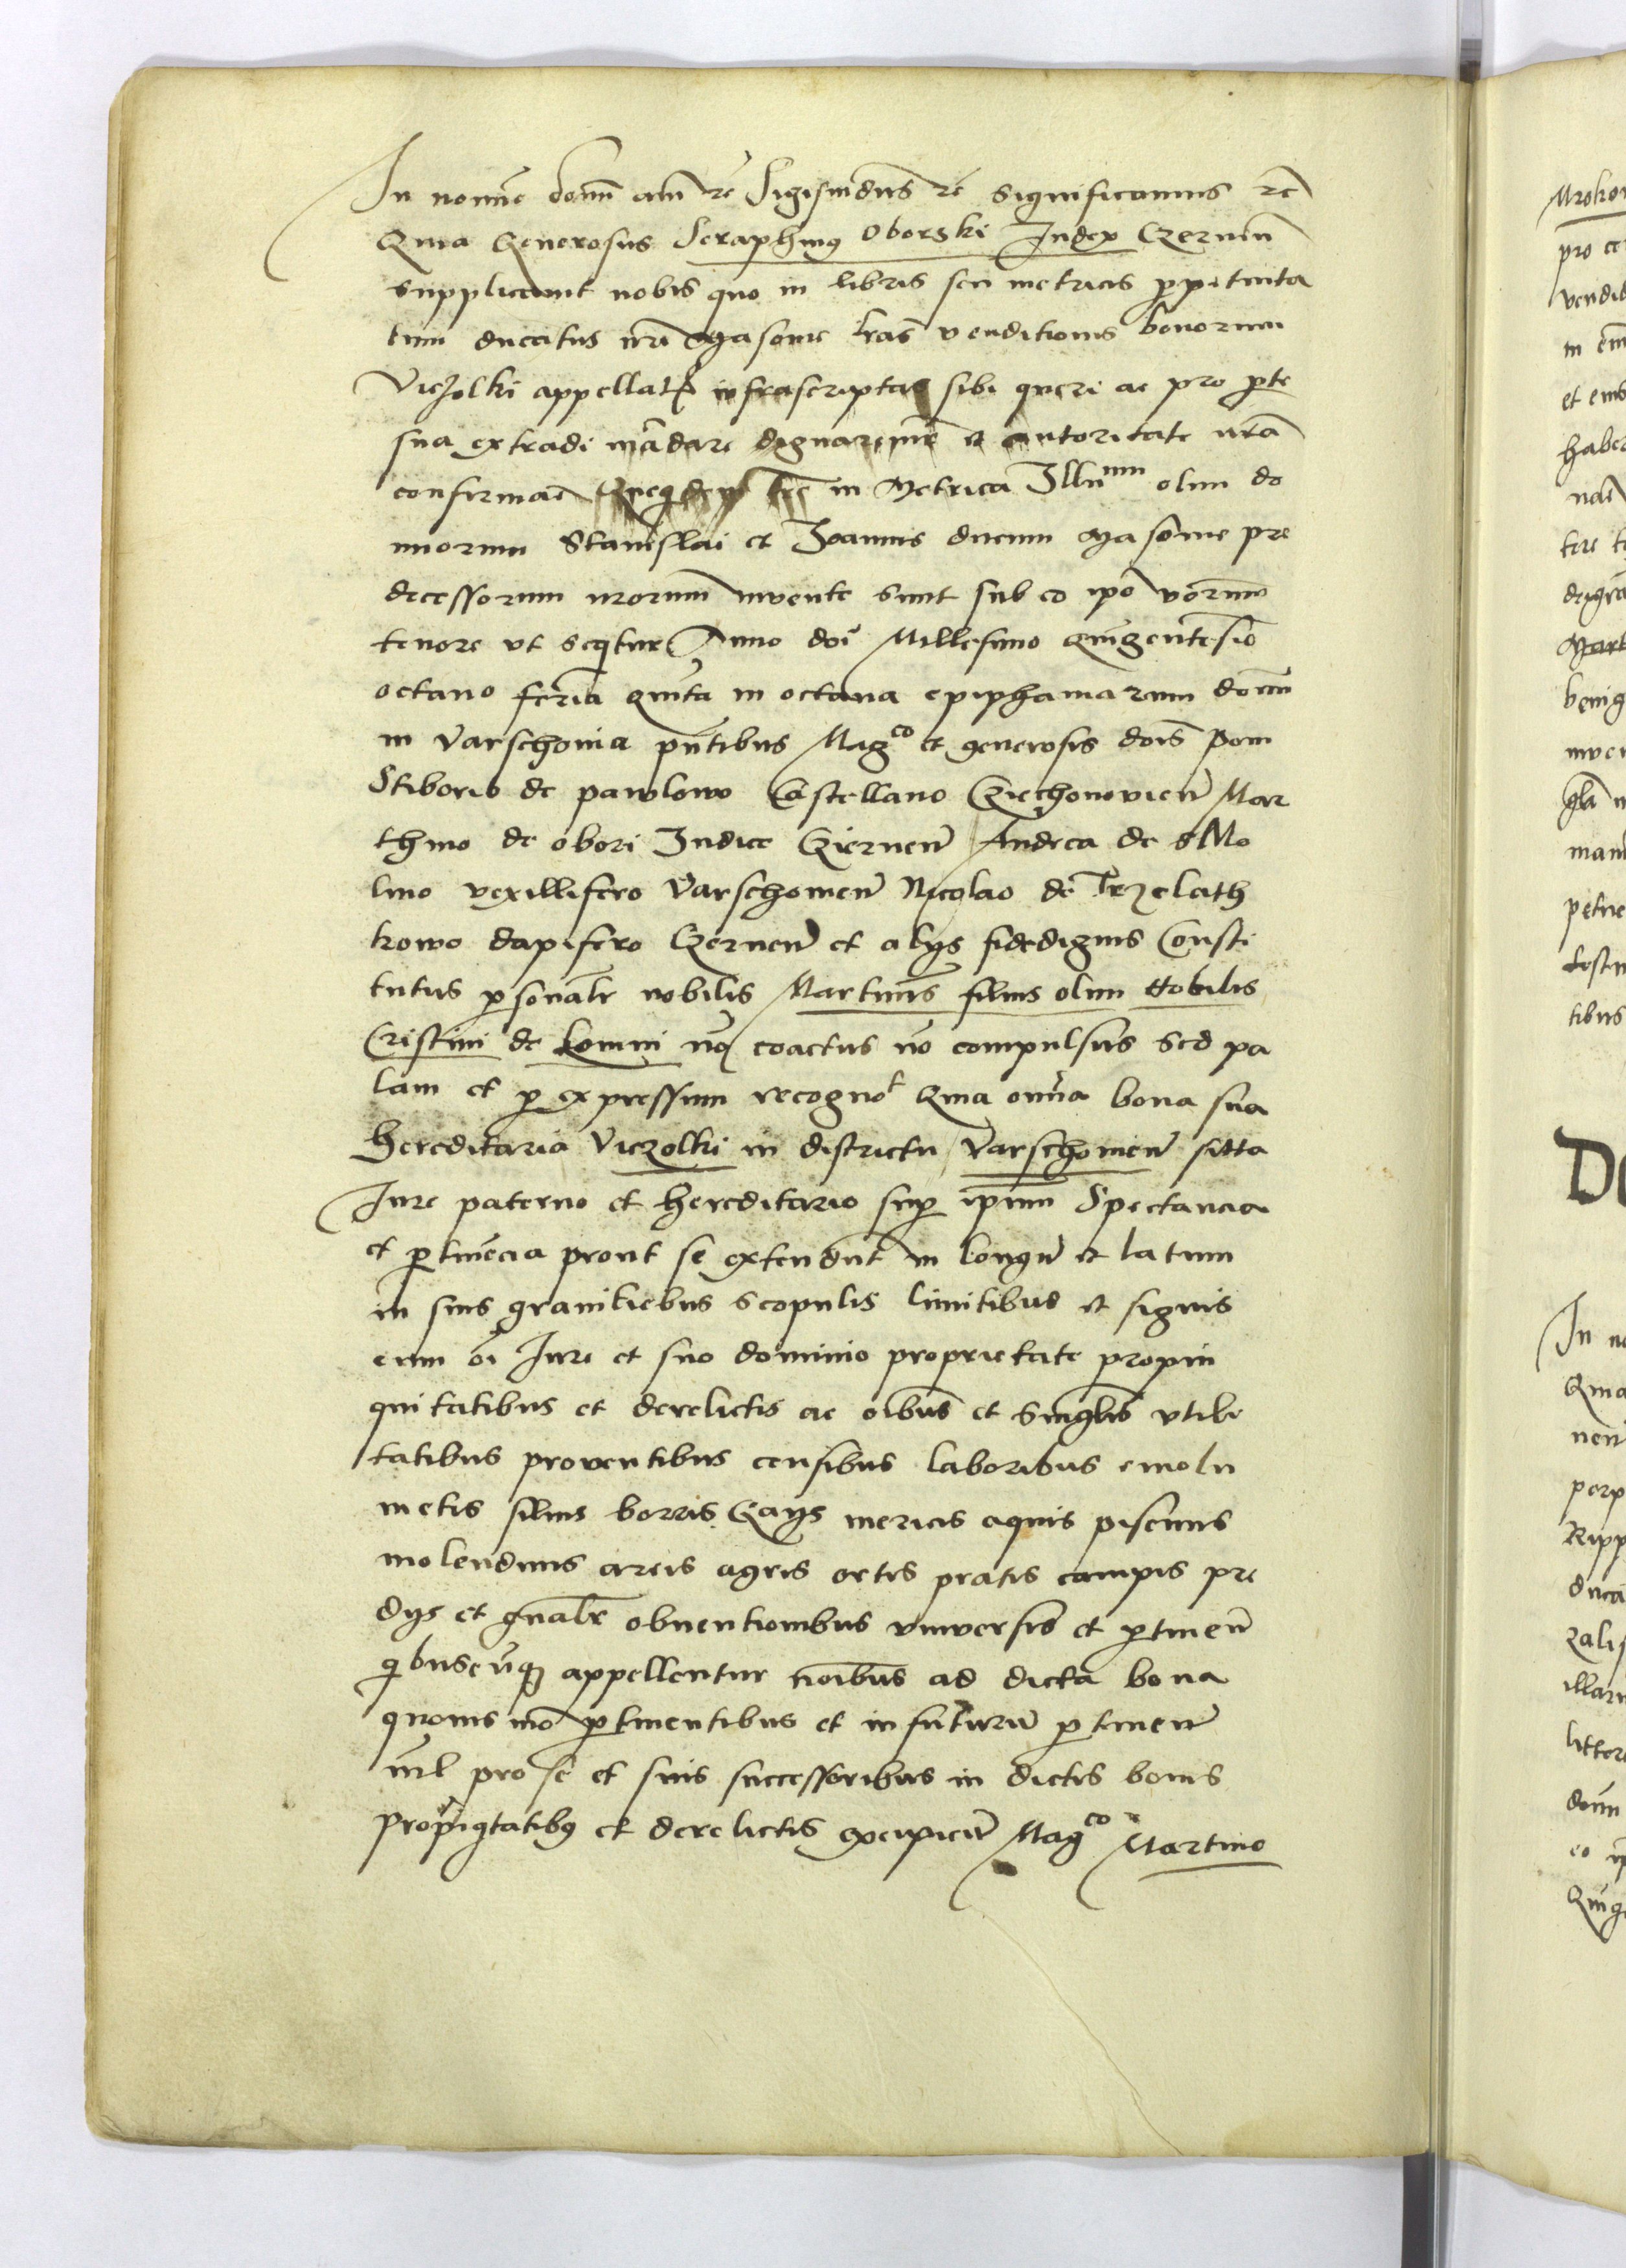 In nomine domini amen rc Sigismūdus rc significamus rc
Quia Generosus Seraphinꝯ Oborski Iudex Czernēn
supplicavit nobis quo in libris seu metricis ꝑpetuita
tum ducatus nrī Masovie lrās venditionis bonorum
Viczolki appellatꝝ infrascriptas sibi queri ac pro ꝑte
sua extradi mādare dignaremur et autoritate nrā
confirmare Quequidem lrē in Metrica Illmūm olim do
minorum Stanislai et Joannis ducum Masovie pre
decessorum nrorum invente sunt sub eo ipo verborum
tenore ut seqitur Anno doī Millesimo quīgentesiō
octavo feria quīta in octava epiphaniarum domini
in Varschovia pñtibus Magco et generosis doīs
Stiborio de pawlowo Castellano Cziechonovien̄ Mar
thino de obori Iudice Cziernen̄ Andrea de sMo
lino vexillifero Varschovien̄ Nicolao de Trzelath
kowo dapifero Czernen̄ et alys fidedignis Consti
tutus ꝑsonalr nobilis Martinus filius olim Nobilis
Cristini de Lomni nō coactus nō compulsus sed pa
lam et ꝑ expressum recognot Quia omīa bona sua
hereditaria Viczolki in districtu Varschovien̄ sitta
Iure paterno et hereditario suꝑ ipsum Spectancia
et ꝑtinēcia prout se extendūt in longū et latum
in suis granitiebus scopulis limitibus et signis
cum oī Iure et suo dominio proprietate propin
quitatibus et derelictis ac oībus et singlīs utili
tatibus proventibus censibus laboribus emolu
metis silvis borris Gays mericis aquis piscinis
molendinis areis agris ortis pratis campis pre
dys et gnālr obventionibus universis et ꝑtinen̄
qibuscūqꝫ appellentur noībus ad dicta bona
quovis mō ꝑtinentibus et in futurū ꝑtinen̄
nil pro se et suis successoribus in dictis bonis
propīqtatibꝯ et derelictis excipien̄ Magco Martino